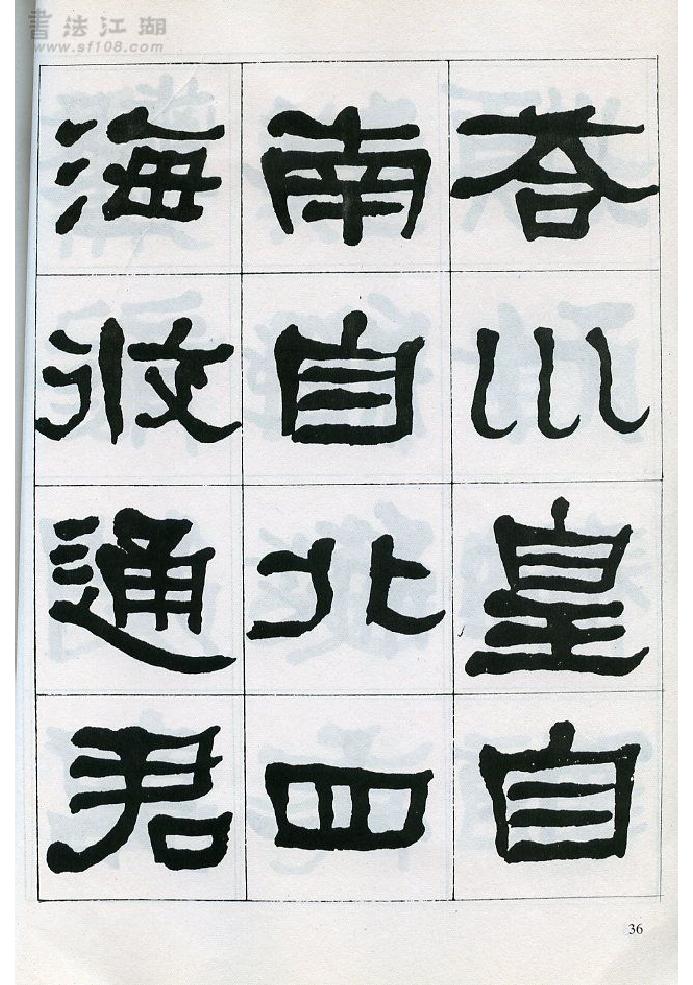 荅川皇自
南自北四
海攸通君
書法江湖
www.sf108.com
36